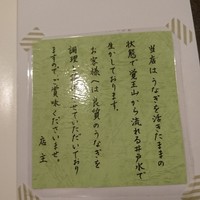 当店はうなぎを活きたままの
状態で覚王山から流れる井戸水で
生かしております。
お客様へは良質のうなぎを
調理させていただいており
ますのでご賞味くださいませ。
店主